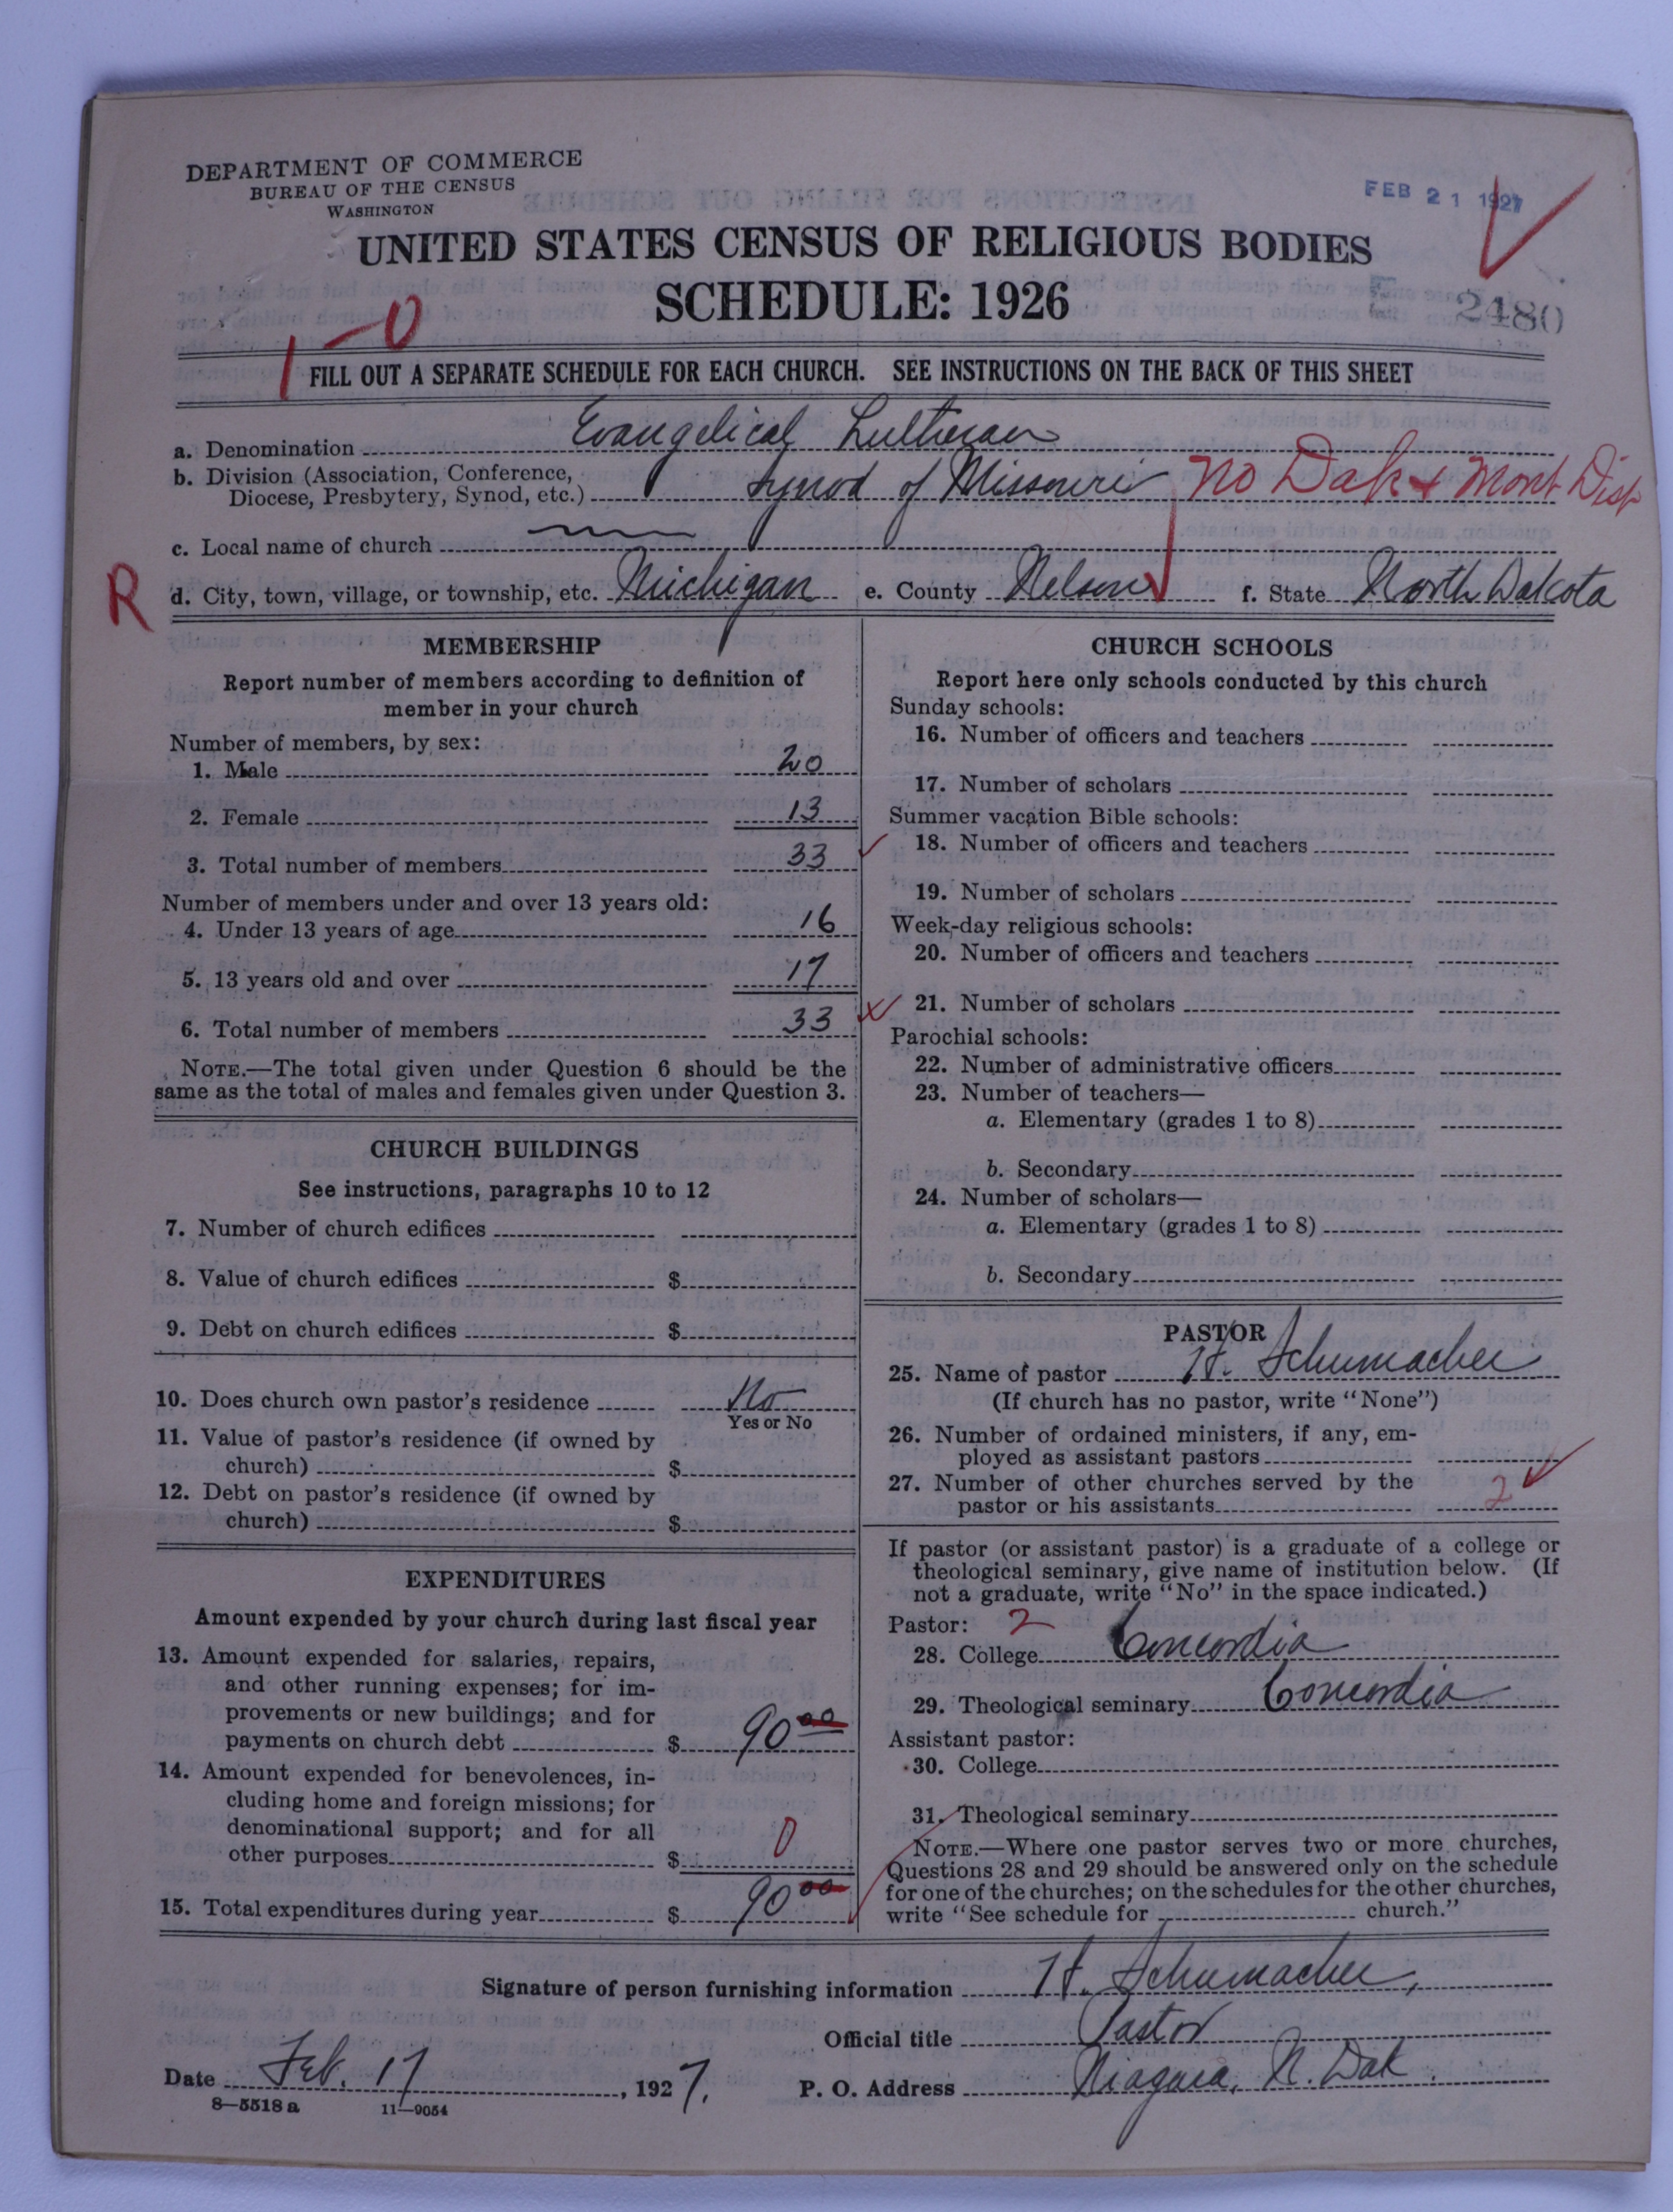 DEPARTMENT OF COMMERCE
BUREAU OF THE CENSUS
WASHINGTON
FEB 21 1927
UNITED STATES CENSUS OF RELIGIOUS BODIES
SCHEDULE: 1926
2480
1-0
FILL OUT A SEPARATE SCHEDULE FOR EACH CHURCH. SEE INSTRUCTIONS ON THE BACK OF THIS SHEET
a. Denomination Evangelical Lutheran
b. Division (Association, Conference,
Diocese, Presbytery, Synod, etc.) Synod of Missouri No Dak & Mont Dist
c. Local name of church
R
d. City, town, village, or township, etc. Michigan e. County Nelson f. State North Dakota
MEMBERSHIP
Report number of members according to definition of
member in your church
Number of members, by sex:
1. Male 20
2. Female 13
3. Total number of members 33
Number of members under and over 13 years old:
4. Under 13 years of age 16
5. 13 years old and over 17
6. Total number of members 33
NOTE.—The total given under Question 6 should be the
same as the total of males and females given under Question 3.
CHURCH BUILDINGS
See instructions, paragraphs 10 to 12
7. Number of church edifices
8. Value of church edifices $
9. Debt on church edifices $
10. Does church own pastor's residence No
Yes or No
11. Value of pastor's residence (if owned by
church) $
12. Debt on pastor's residence (if owned by
church) $
EXPENDITURES
Amount expended by your church during last fiscal year
13. Amount expended for salaries, repairs,
and other running expenses; for im-
provements or new buildings; and for
payments on church debt $ 90 00
14. Amount expended for benevolences, in-
cluding home and foreign missions; for
denominational support; and for all
other purposes $ 0
15. Total expenditures during year $ 90 00
CHURCH SCHOOLS
Report here only schools conducted by this church
Sunday schools:
16. Number of officers and teachers
17. Number of scholars
Summer vacation Bible schools:
18. Number of officers and teachers
19. Number of scholars
Week-day religious schools:
20. Number of officers and teachers
21. Number of scholars
Parochial schools:
22. Number of administrative officers
23. Number of teachers—
a. Elementary (grades 1 to 8)
b. Secondary
24. Number of scholars—
a. Elementary (grades 1 to 8)
b. Secondary
PASTOR
25. Name of pastor H. Schumacher
(If church has no pastor, write "None")
26. Number of ordained ministers, if any, em-
ployed as assistant pastors
27. Number of other churches served by the
pastor or his assistants 2
If pastor (or assistant pastor) is a graduate of a college or
theological seminary, give name of institution below. (If
not a graduate, write "No" in the space indicated.)
Pastor: 2
28. College Concordia
29. Theological seminary Concordia
Assistant pastor:
30. College
31. Theological seminary
NOTE.—Where one pastor serves two or more churches,
Questions 28 and 29 should be answered only on the schedule
for one of the churches; on the schedules for the other churches,
write "See schedule for church."
Signature of person furnishing information H. Schumacher,
Official title Pastor
Date Feb. 17, 1927. P. O. Address Niagara, N. Dak.
8—5518 a 11—9054